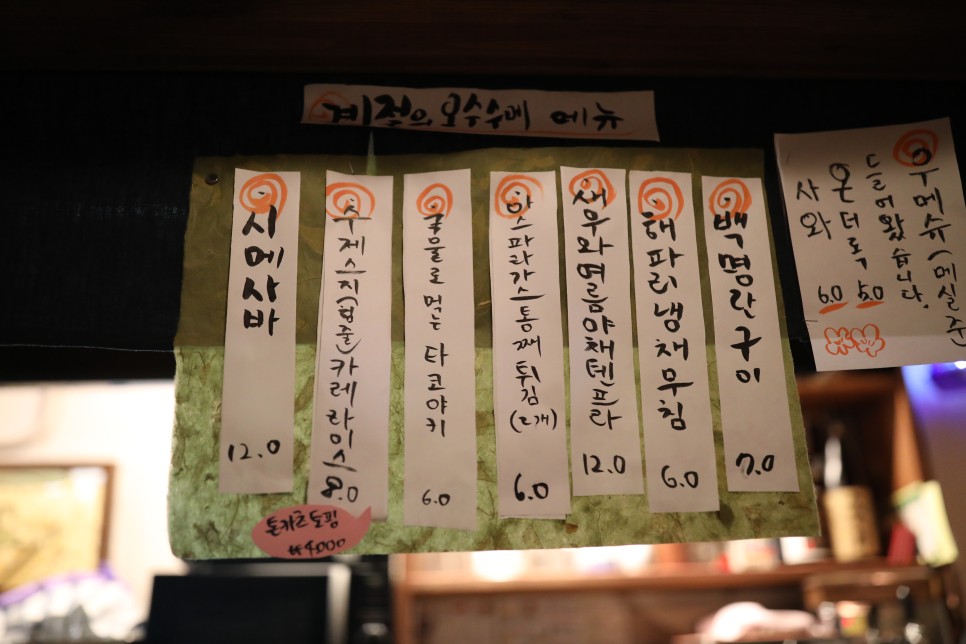 계절의 오스스메 메뉴
시메사바
12.0
수제스지(힘줄)카레라이스
8.0
돈카츠토핑
₩4000
국물로 먹는 타코야키
6.0
아스파라가스통째튀김
(2개)
6.0
새우와여름야채텐프라
12.0
해파리냉채무침
6.0
백명란구이
7.0
우메슈(매실주)
들어왔습니다.
온더록 5.0
사와 6.0